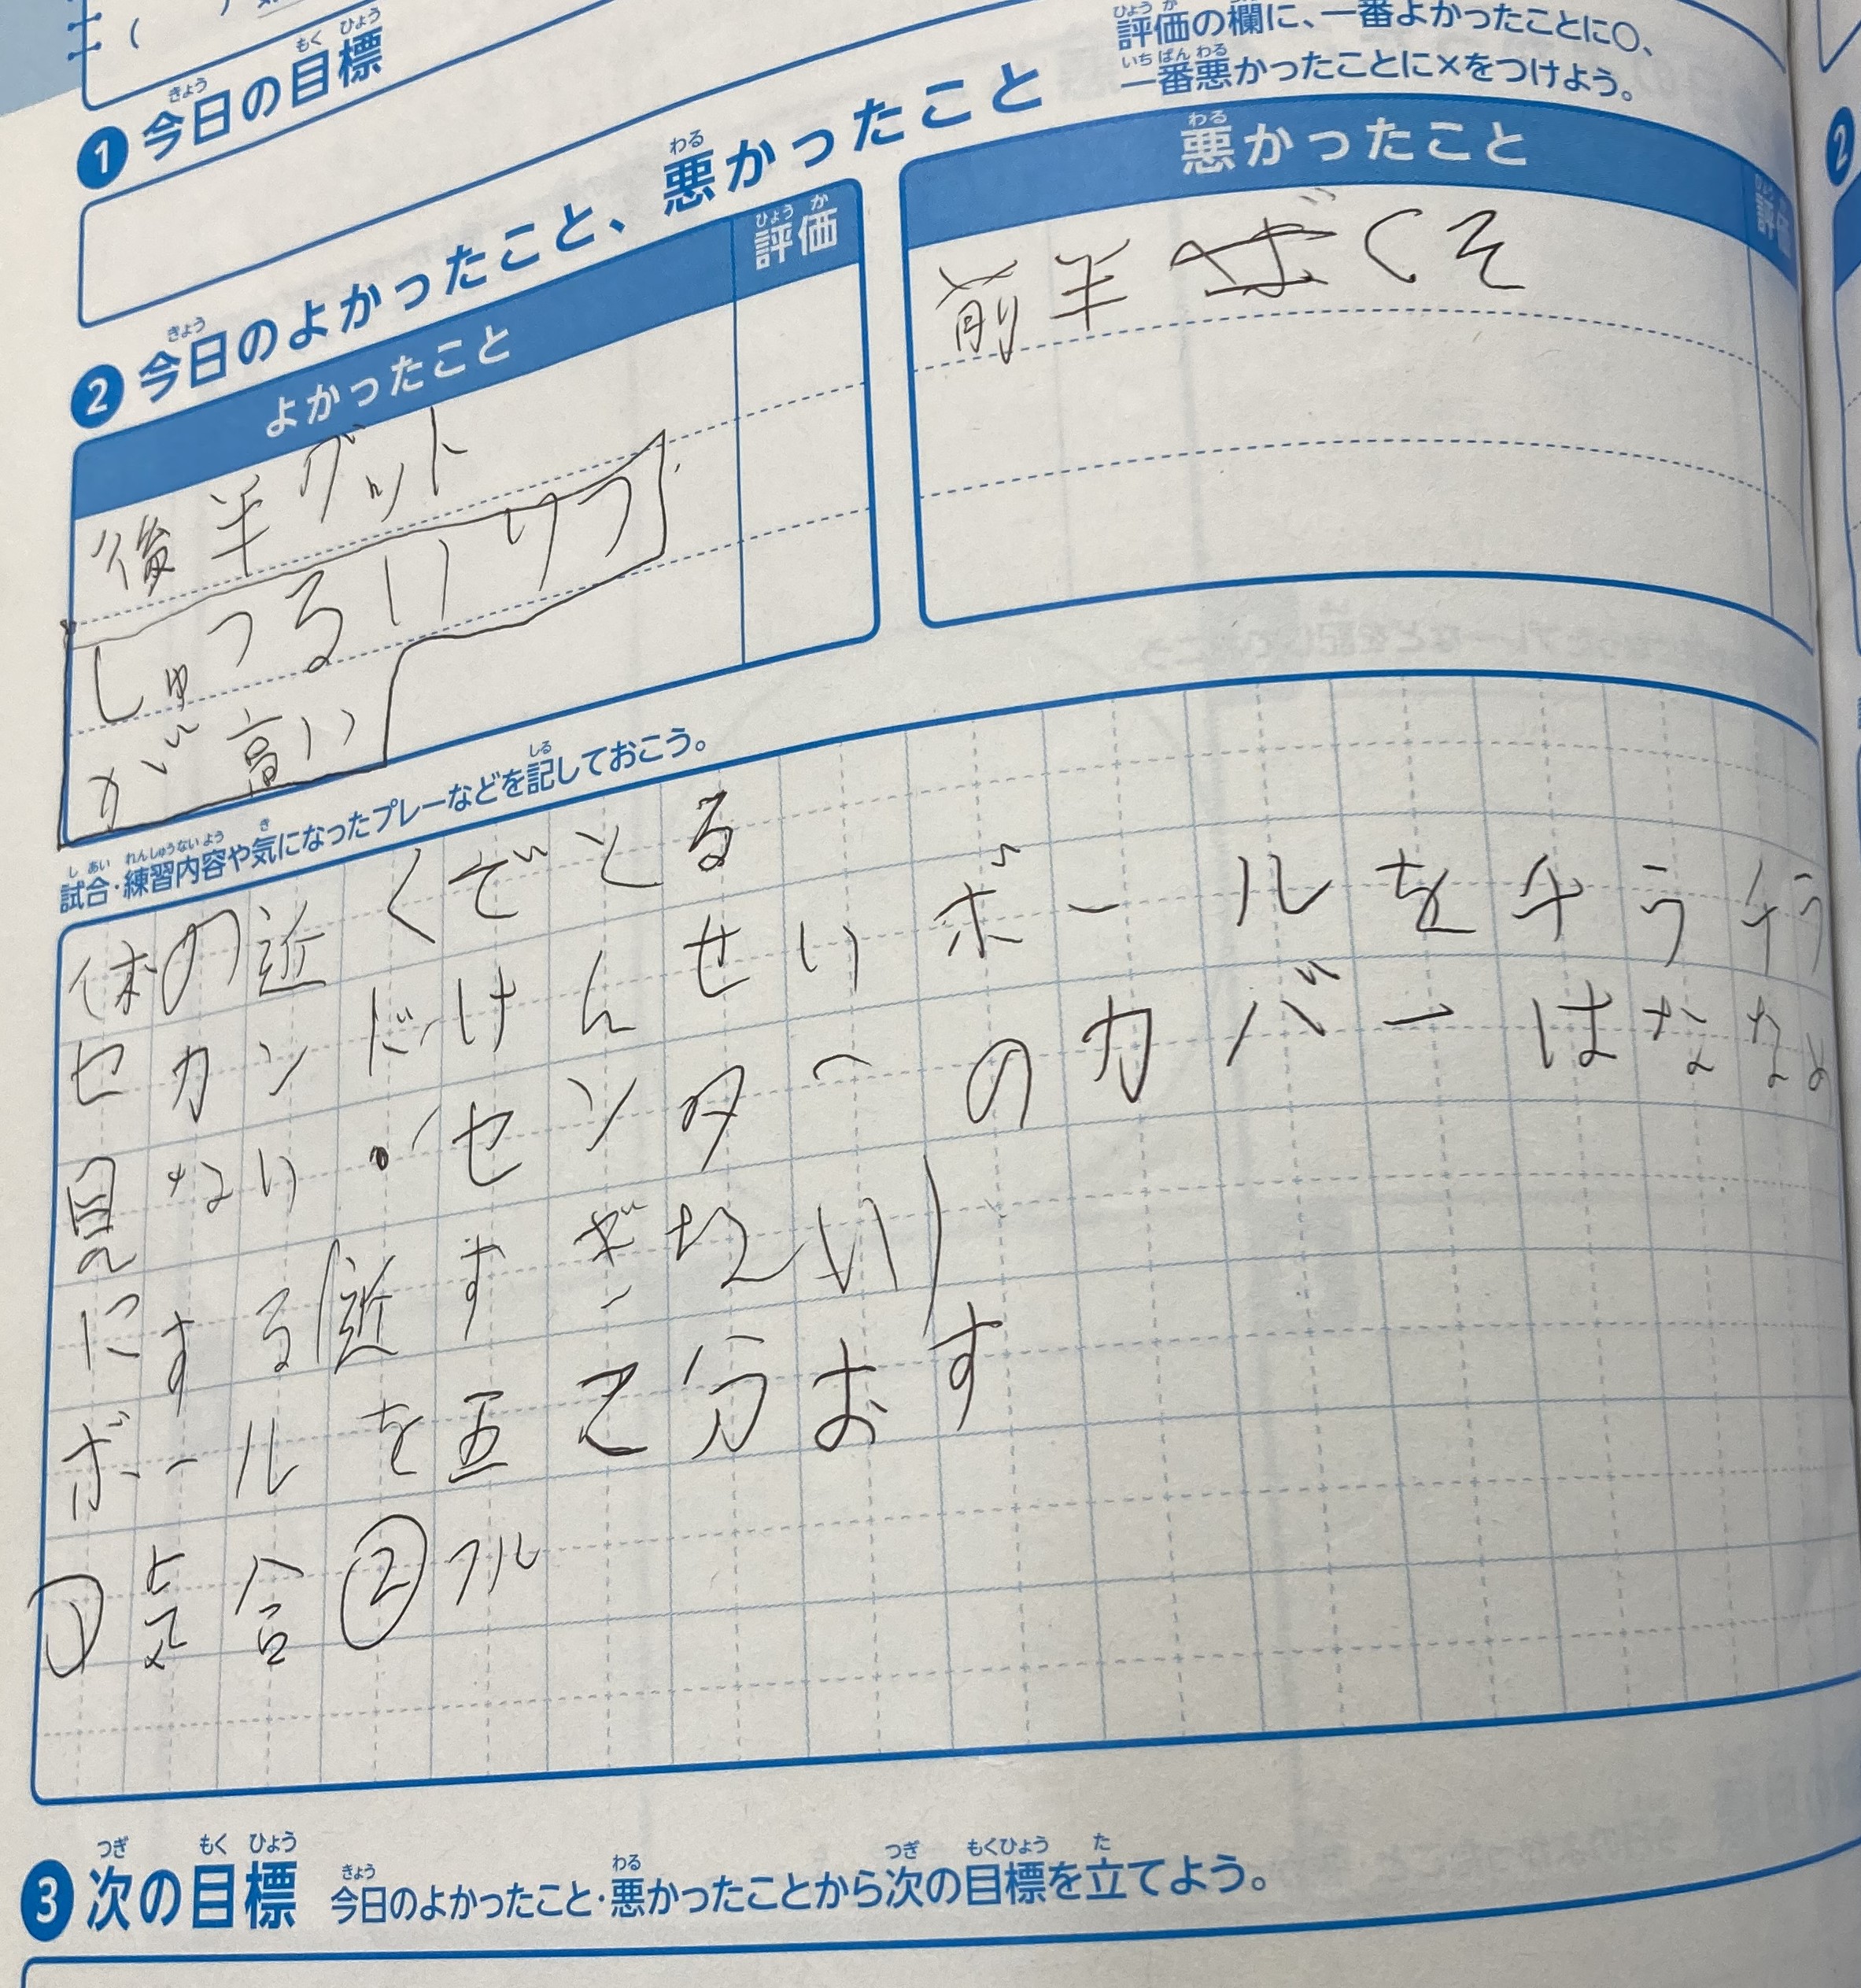 1 今日の目標
2 今日のよかったこと、悪かったこと
評価の欄に、一番よかったことに○、
一番悪かったことに×をつけよう。
よかったこと 評価
後半グット
しゅつるいりつ
が高い
悪かったこと 評価
前半 くそ
試合・練習内容や気になったプレーなどを記しておこう。
体の近くでとる
セカンだけんせいボールを
見ない・センターのカバーは
にする(近すぎない)
ボールを 分おす
①気合②フル
3 次の目標 今日のよかったこと・悪かったことから次の目標を立てよう。